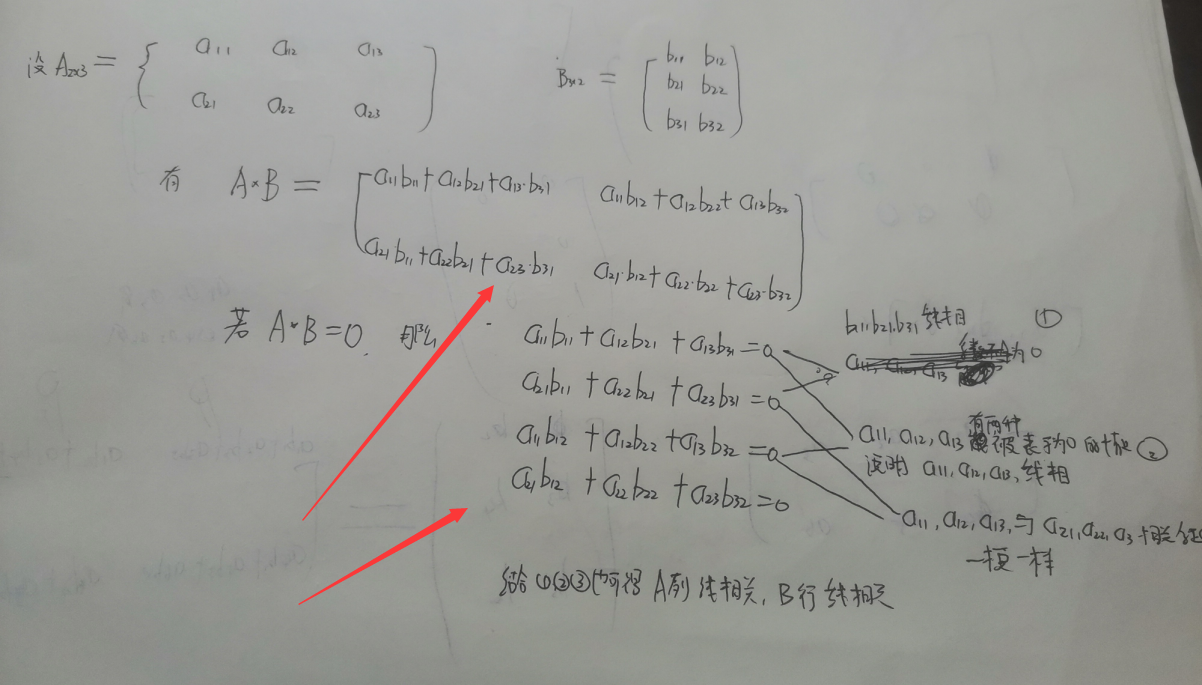 设 A₂ₓ₃ = { a₁₁ a₁₂ a₁₃
a₂₁ a₂₂ a₂₃ )
B₃ₓ₂ = [ b₁₁ b₁₂
b₂₁ b₂₂
b₃₁ b₃₂ )
有 A×B = [ a₁₁b₁₁+a₁₂b₂₁+a₁₃·b₃₁ a₁₁b₁₂+a₁₂b₂₂+a₁₃b₃₂
a₂₁b₁₁+a₂₂b₂₁+a₂₃·b₃₁ a₂₁·b₁₂+a₂₂·b₂₂+a₂₃·b₃₂ ]
若 A*B=0, 那么 a₁₁b₁₁+a₁₂b₂₁+a₁₃b₃₁=0
a₂₁b₁₁+a₂₂b₂₁+a₂₃b₃₁=0
a₁₁b₁₂+a₁₂b₂₂+a₁₃b₃₂=0
a₂₁b₁₂+a₂₂b₂₂+a₂₃b₃₂=0
b₁₁b₂₁,b₃₁ 线相 ①
a₁₁, a₁₂, a₁₃ 为0
有两种
a₁₁, a₁₂, a₁₃ 被表示为0的 ②
说明 a₁₁, a₁₂, a₁₃, 线相
a₁₁, a₁₂, a₁₃, 与 a₂₁, a₂₂, a₃
一模一样
结合①②③ 可得 A列线相关, B行线相关